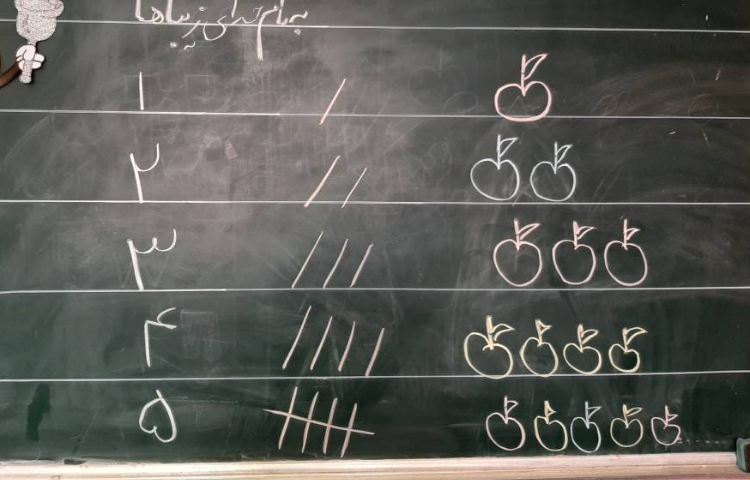 به نام خدای زیباها
۱
۲
۳
۴
۵